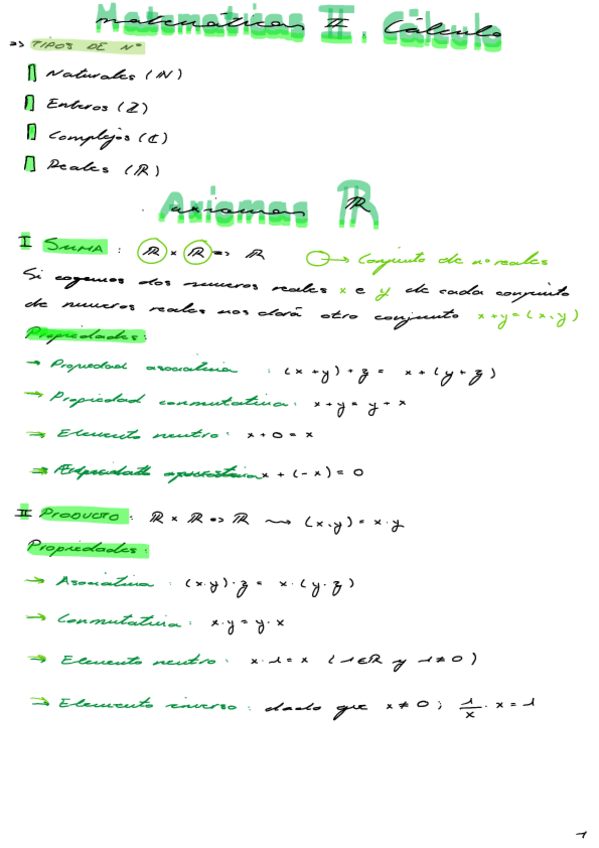 Matemáticas II. Cálculo
a) TIPOS DE Nº
Naturales (ℕ)
Enteros (ℤ)
Complejos (ℂ)
Reales (ℝ)
Axiomas ℝ
I SUMA : ℝ × ℝ => ℝ → Conjunto de nº reales
Si cogemos dos numeros reales x e y de cada conjunto
de numeros reales nos dará otro conjunto x+y=(x,y)
Propiedades:
→ Propiedad asociativa : (x+y)+z = x+(y+z)
→ Propiedad conmutativa: x+y = y+x
→ Elemento neutro: x+0=x
→ x+(-x)=0
II PRODUCTO: ℝ × ℝ => ℝ ⇝ (x,y)=x·y
Propiedades:
→ Asociativa : (x·y)·z = x·(y·z)
→ Conmutativa: x·y = y·x
→ Elemento neutro: x·1=x (1∈ℝ y 1≠0)
→ Elemento inverso: dado que x≠0; 1/x · x=1
1